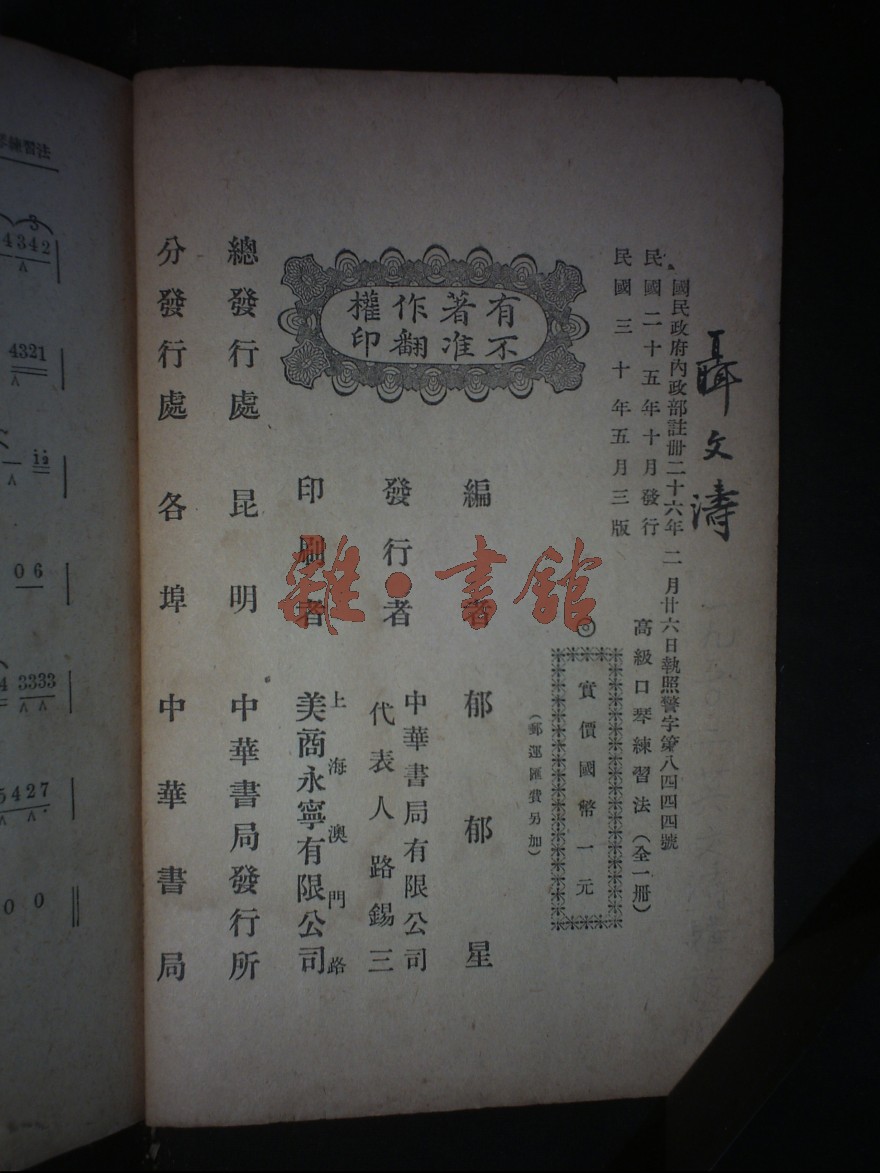 聶文濤
國民政府內政部註冊二十六年二月廿六日執照警字第八四四四號
民國二十五年十月發行
民國三十年五月三版
高級口琴練習法（全一册）
實價國幣一元
（郵運匯費另加）
有著作權
不准翻印
編者 郁郁星
發行者 中華書局有限公司
代表人路錫三
印刷者 上海澳門路
美商永寧有限公司
總發行處 昆明 中華書局發行所
分發行處 各埠 中華書局
雜·書館
琴練習法
3
4342
4321
06
3333
5427
0 0